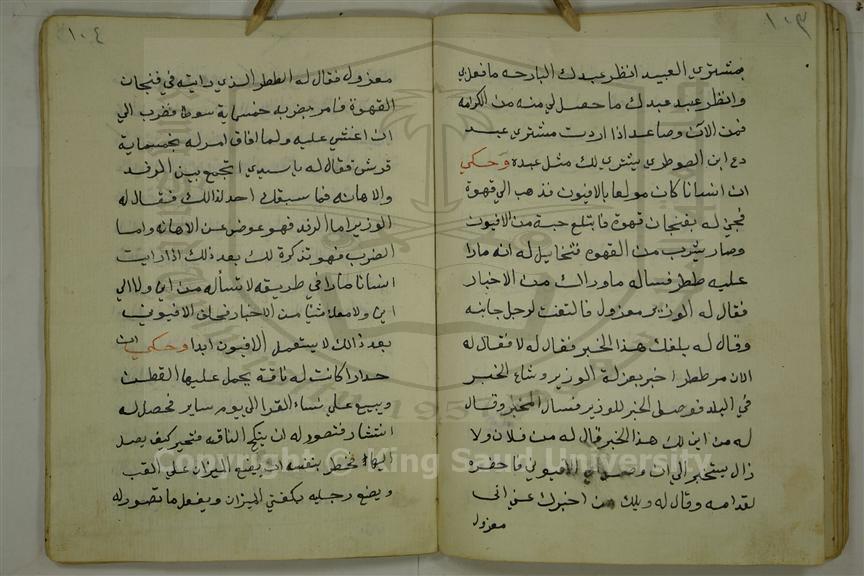 ١٠٣
بمشتري العبيد انظر عبدك البارحه ما فعل بي
وانظر عبد عبدك ما حصل لي منه من الكرامه
فمن الآن وصاعد اذا اردت مشتري عبد
دع ابن الصوطري يشتري لك مثل عبده وحكي
ان انسانا كان مولعا بالافيون فذهب الي قهوة
فجئ له بفنجان قهوة فابتلع حبة من الافيون
وصار يشرب من القهوه فتخايل له انه مارا
عليه ططر فساله ما وراك من الاخبار
فقال له الوزير معزول فالتفت لرجل جانبه
وقال له بلغك هذا الخبر فقال له لا فقال له
الان مر ططر اخبر بعزلة الوزير وشاع الخبر
في البلد فوصل الخبر للوزير فسال المخبر وقال
له من اين لك هذا الخبر قال له من فلان ولا
زال يستخبر الي ان وصل الي الافيوني فاحضره
لقدامه وقال له ويلك من اخبرك عني اني
معزول
١٠٤
معزول فقال له الططر الذي رايته في فنجان
القهوة فامر بضربه خمسماية سوط فضرب الي
ان اغشي عليه ولما افاق امر له بخمسماية
قرش فقال له يا سيدي اتجمع بين الرفد
والاهانه فما سبقك احد لذالك فقال له
الوزير اما الرفد فهو عوض عن الاهانه واما
الضرب فهو تذكرة لك بعد ذلك اذا رايت
انسانا مارا في طريقه لا تسأله من اين ولا الي
اين ولا معك شيا من الاخبار فحلف الافيوني
بعد ذالك لا يستعمل الافيون ابدا وحكي ان
حدادا كانت له ناقة يحمل عليها القطن
ويبيع علي نساء القرا الي يوم ساير فحصل له
انتشار فتصور له ان ينكح الناقه فتحير كيف يصل
اليها فخطر بنفسه ان يضع الميزان علي القب
ويضع رجليه بكفتي الميزان ويفعل ما تصور له
© King Saud University
1957